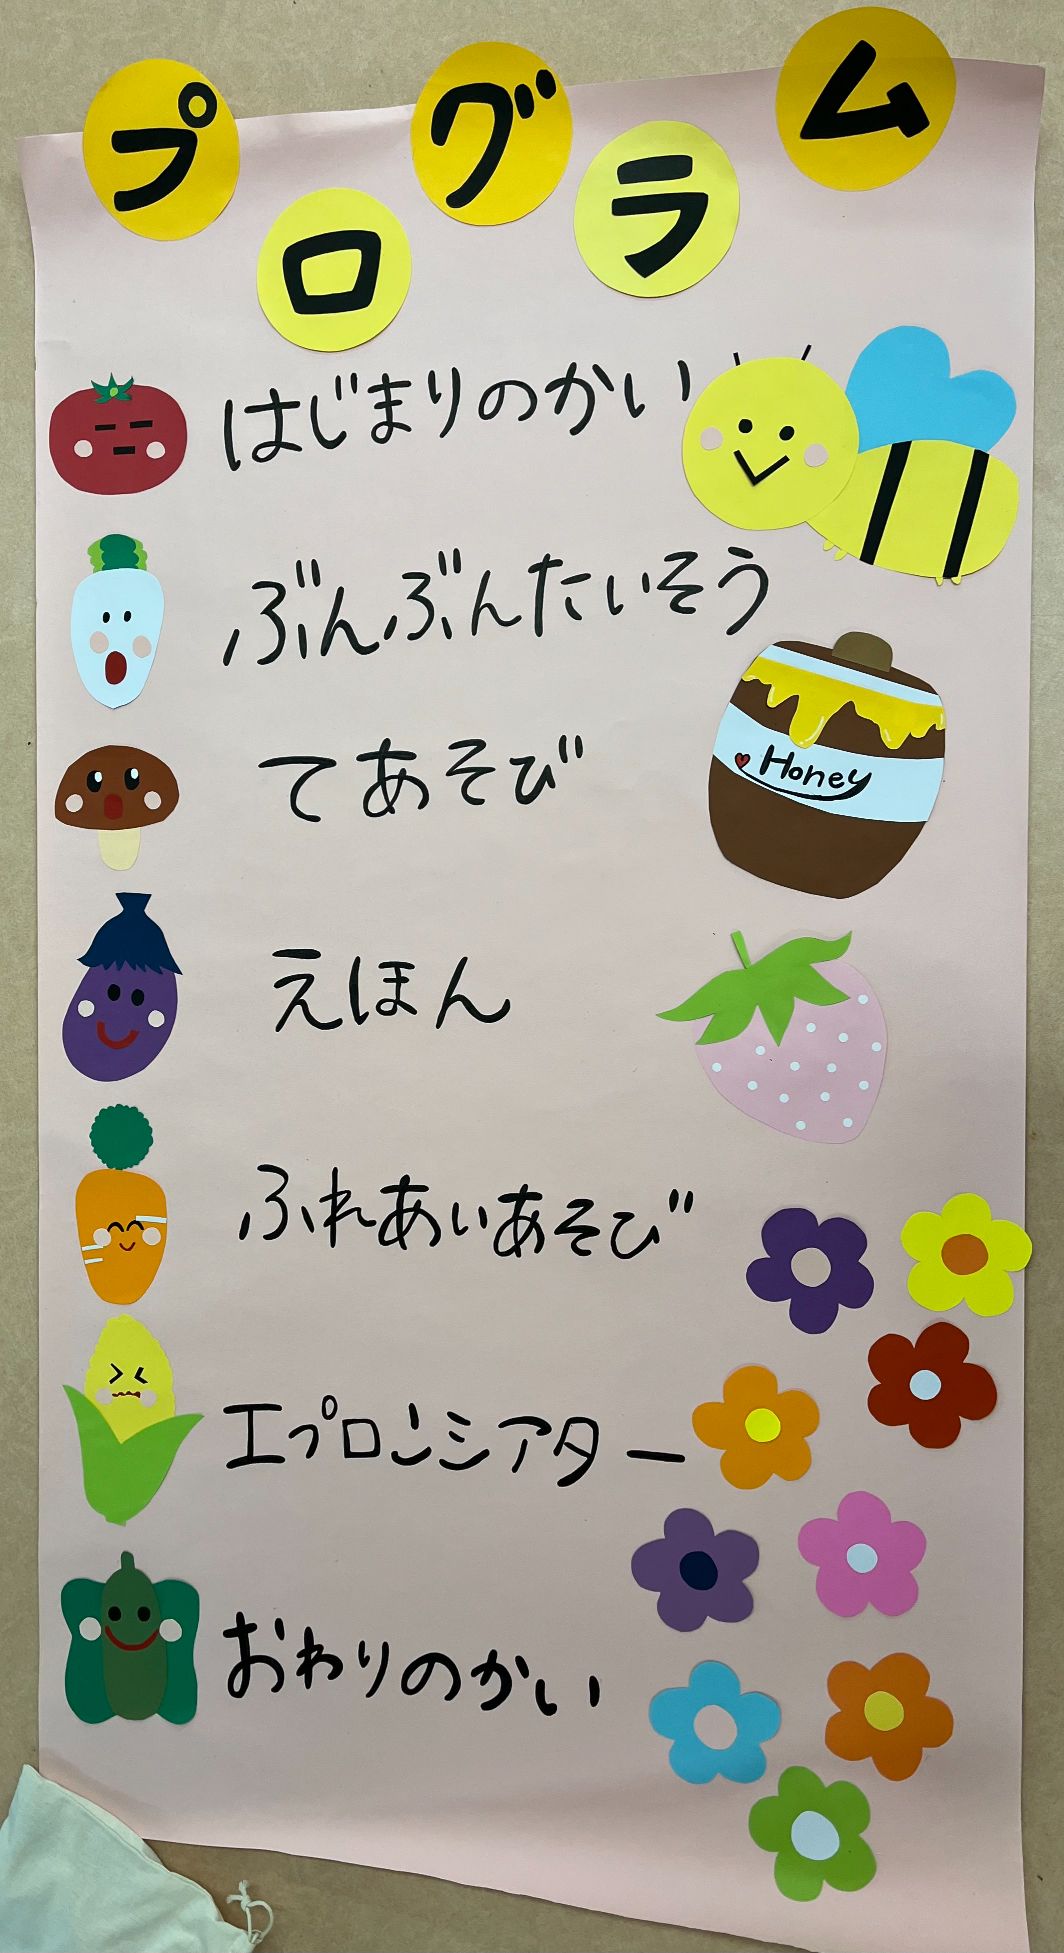 プログラム
はじまりのかい
ぶんぶんたいそう
てあそび
Honey
えほん
ふれあいあそび
エプロンシアター
おわりのかい